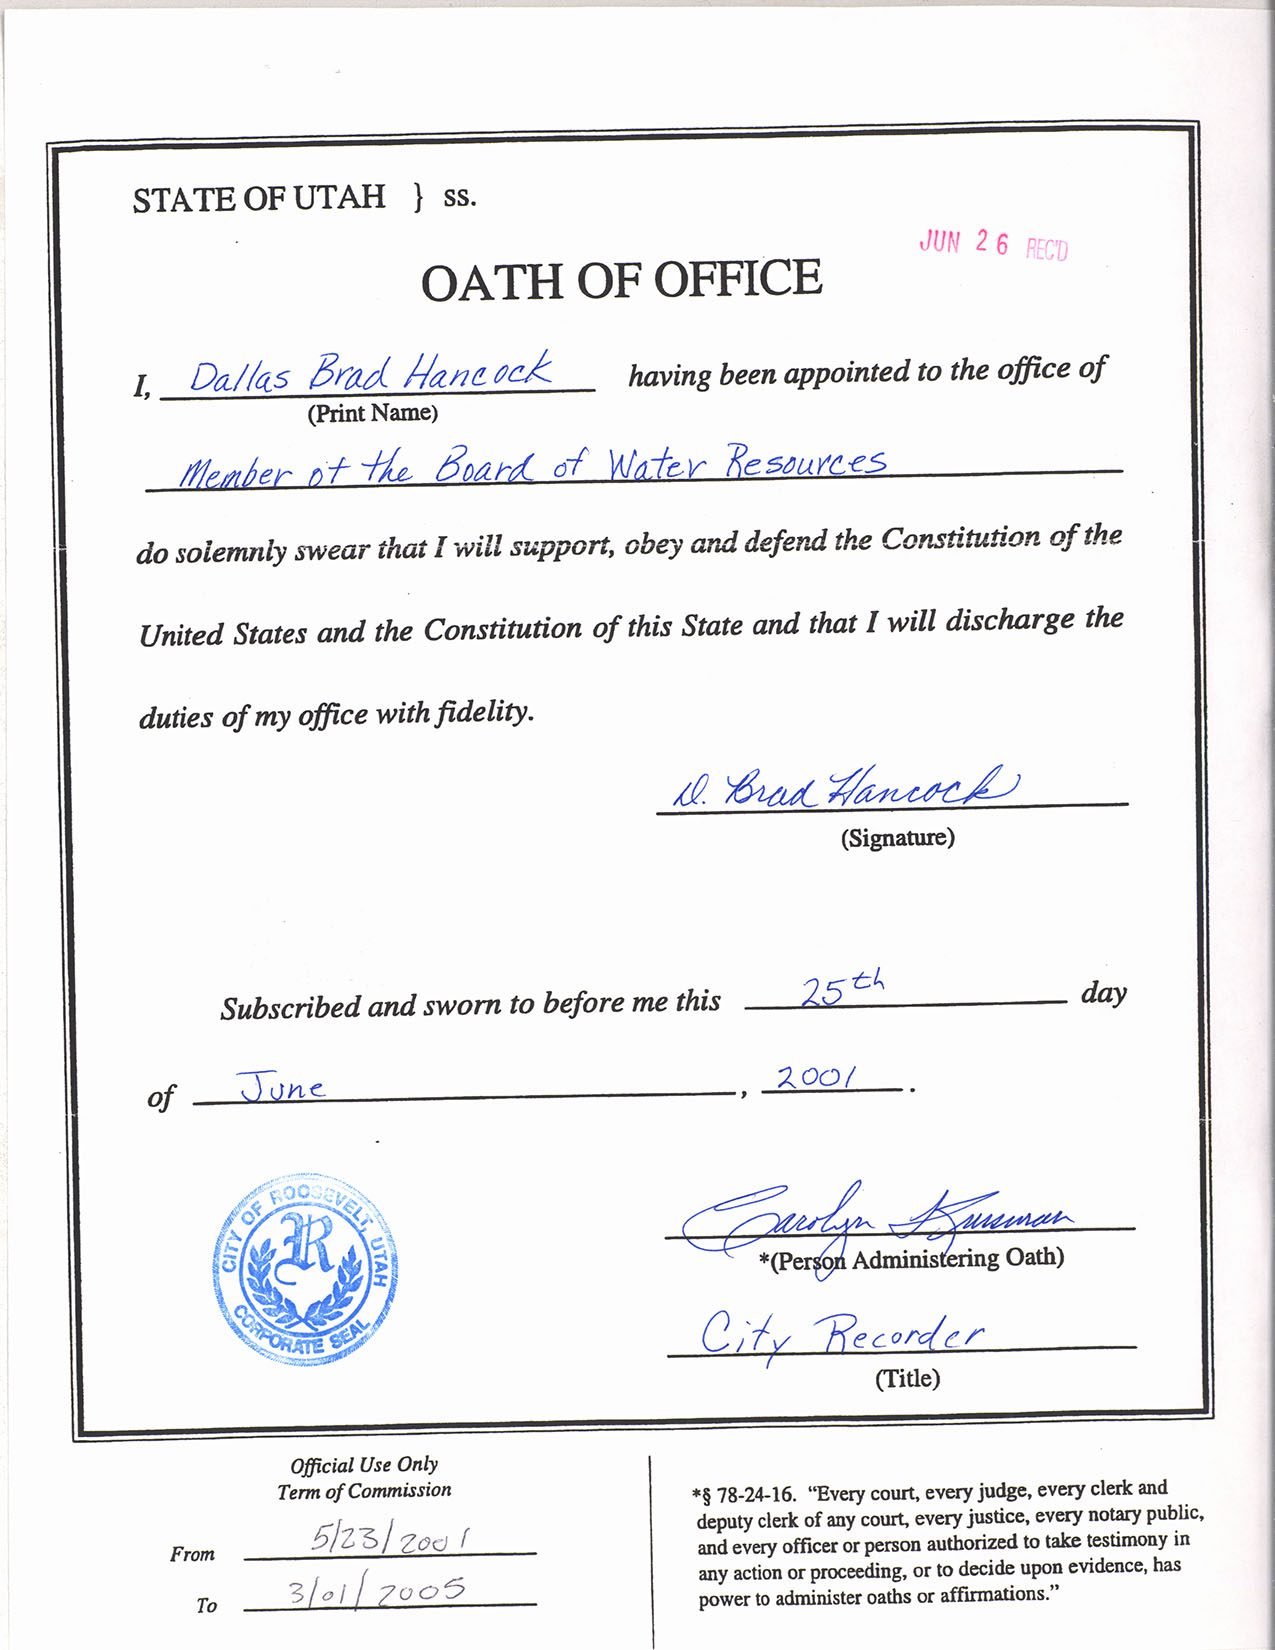 STATE OF UTAH } ss.
JUN 26 REC'D
OATH OF OFFICE
I, Dallas Brad Hancock having been appointed to the office of
(Print Name)
Member of the Board of Water Resources
do solemnly swear that I will support, obey and defend the Constitution of the
United States and the Constitution of this State and that I will discharge the
duties of my office with fidelity.
D. Brad Hancock
(Signature)
Subscribed and sworn to before me this 25th day
of June, 2001.
CITY OF ROOSEVELT, UTAH
R
CORPORATE SEAL
Carolyn
*(Person Administering Oath)
City Recorder
(Title)
Official Use Only
Term of Commission
From 5/23/2001
To 3/01/2005
*§ 78-24-16. “Every court, every judge, every clerk and
deputy clerk of any court, every justice, every notary public,
and every officer or person authorized to take testimony in
any action or proceeding, or to decide upon evidence, has
power to administer oaths or affirmations.”